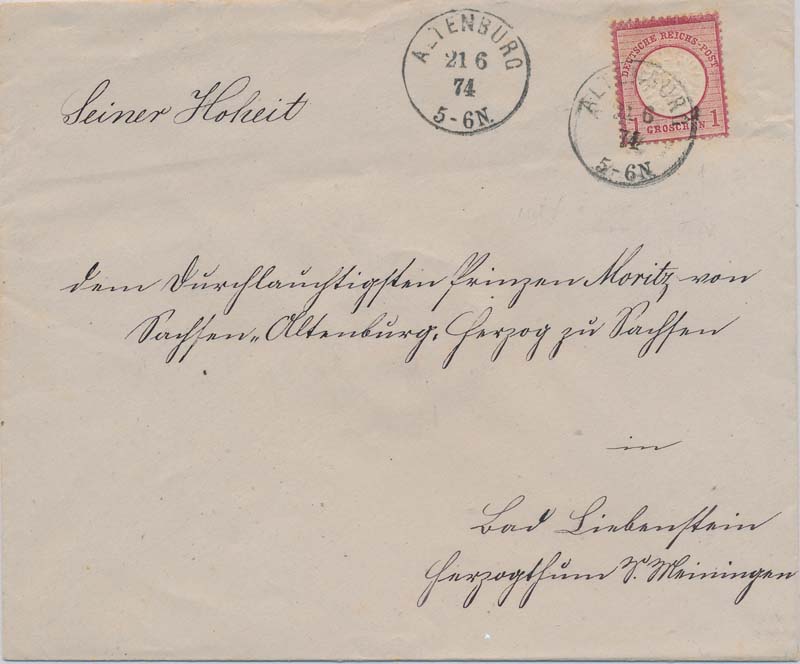 ALTENBURG
21 6
74
5-6N.
DEUTSCHE REICHS-POST
1 GROSCHEN 1
ALTENBURG
21 6
74
5-6N.
Seiner Hoheit
dem Durchlauchtigsten Prinzen Moritz von
Sachsen-Altenburg, Herzog zu Sachsen
in
Bad Liebenstein
Herzogthum S. Meiningen